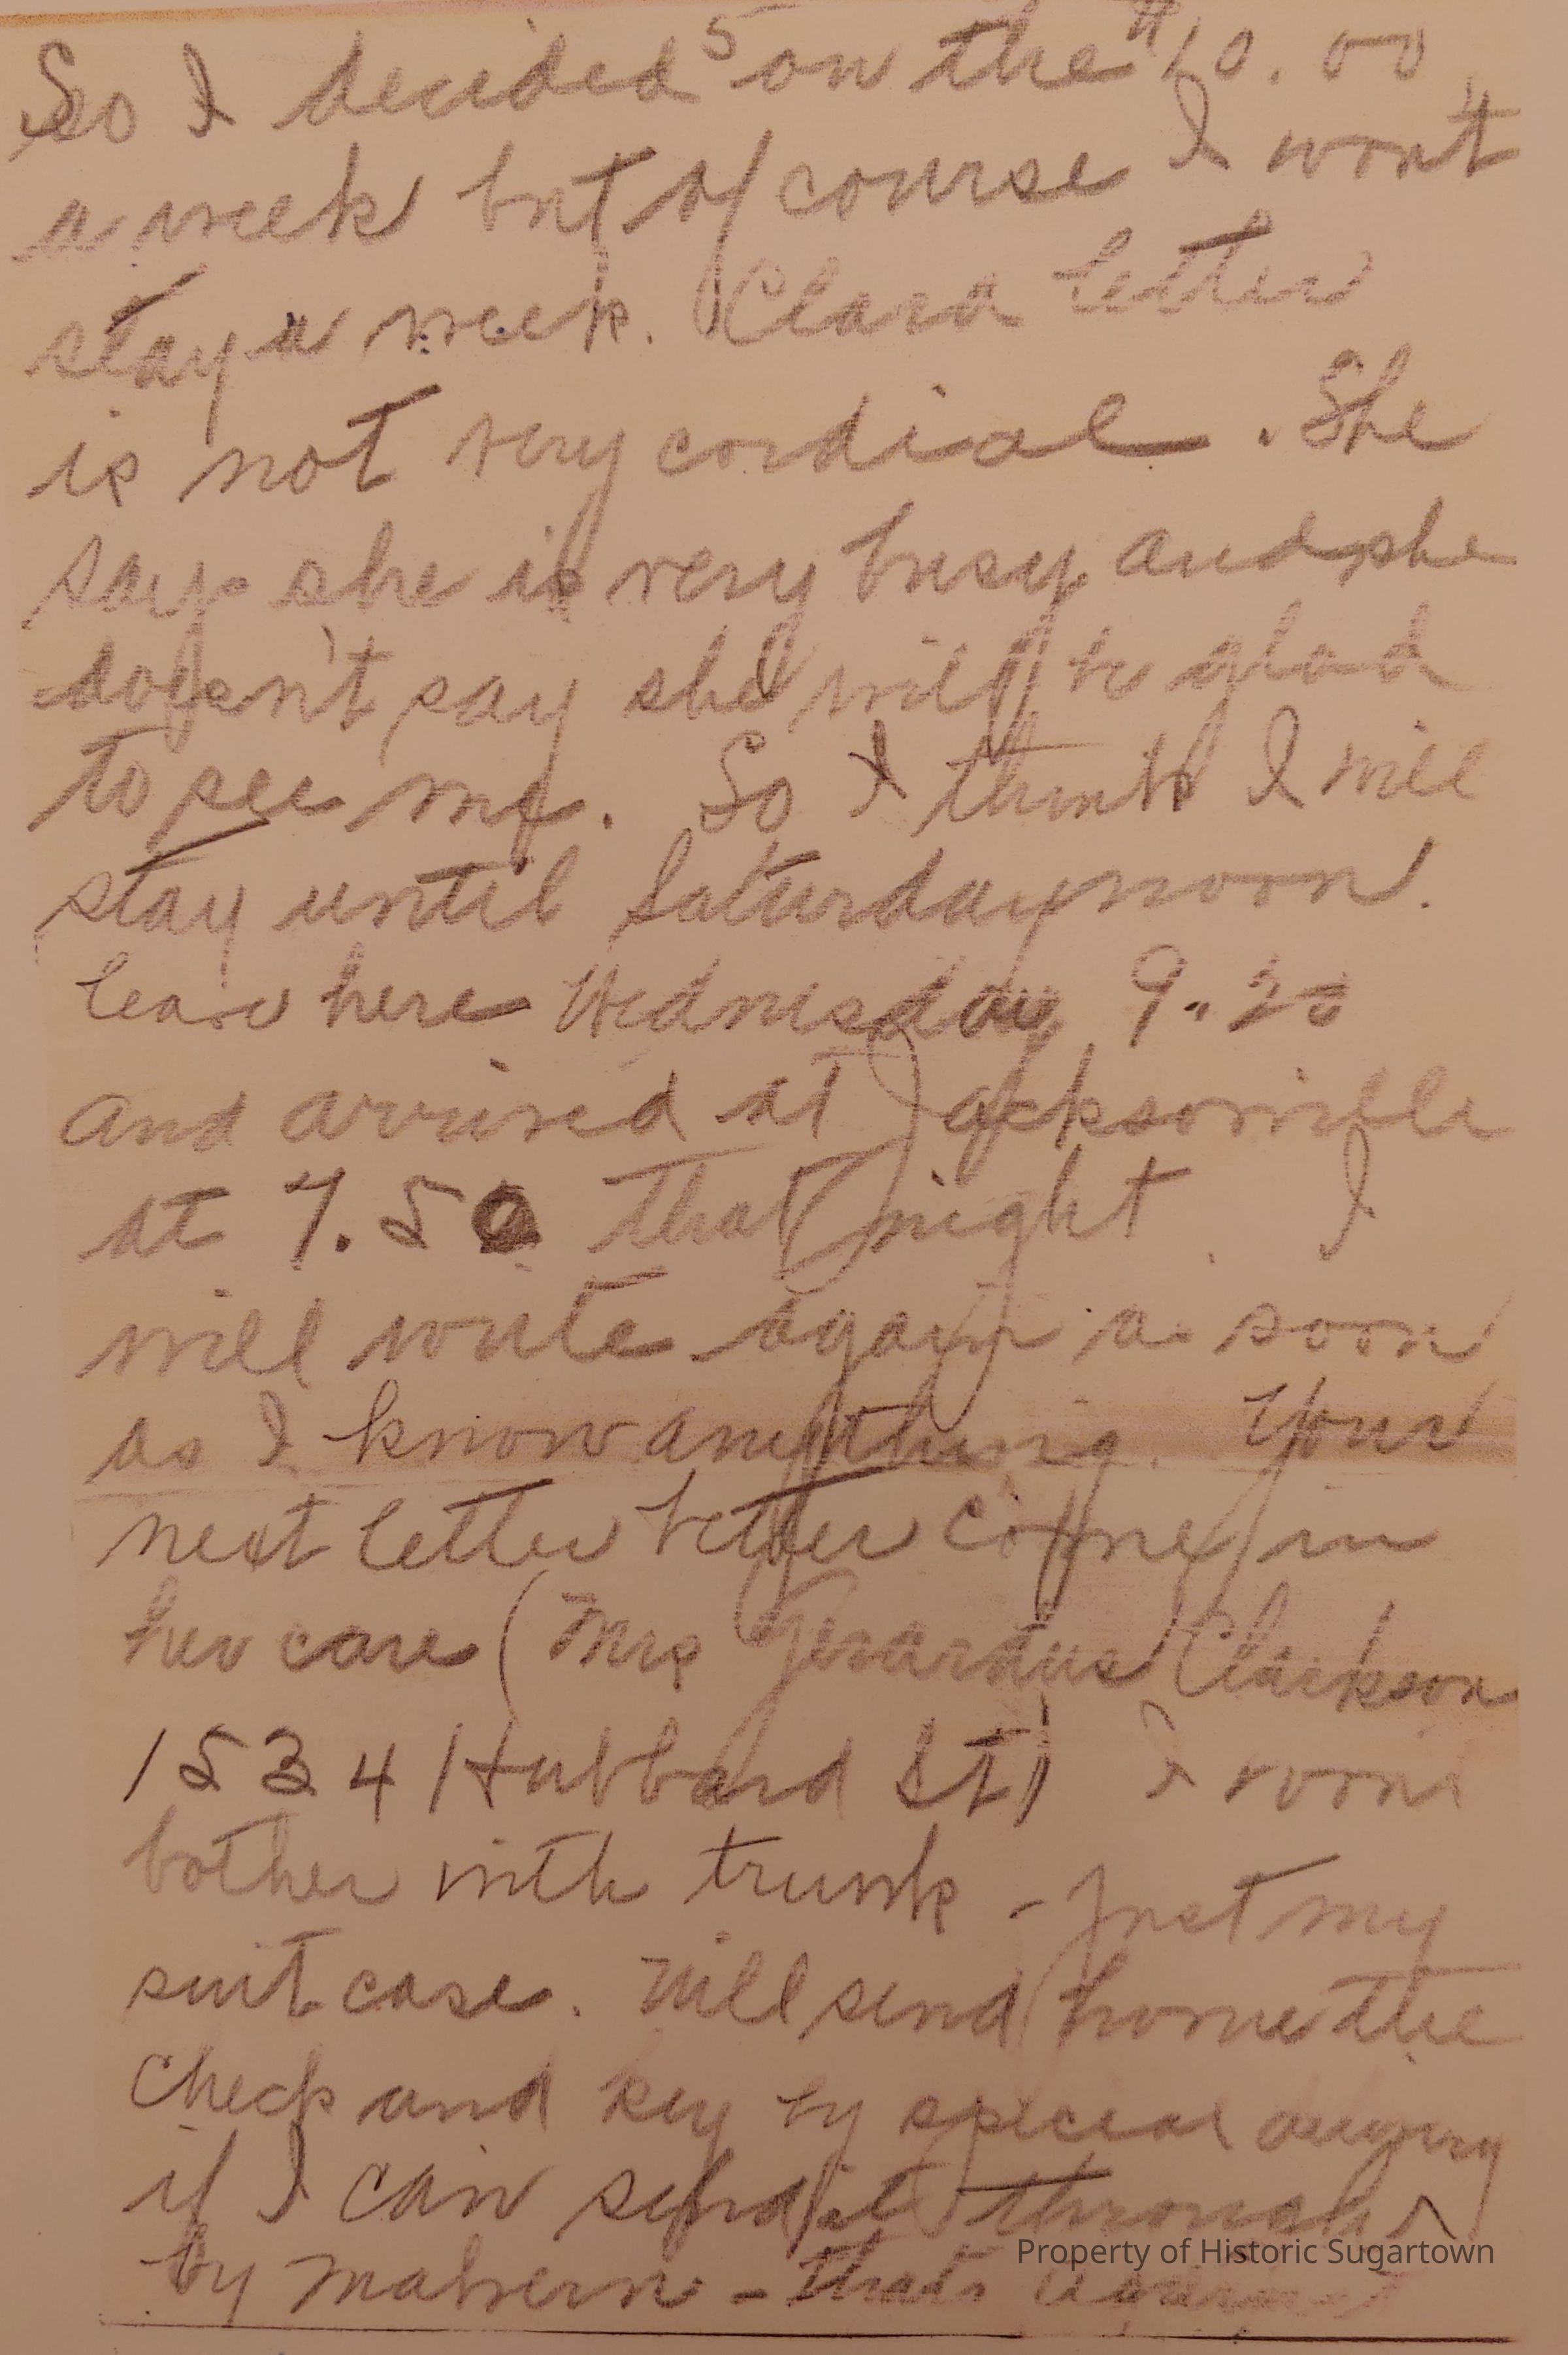 5
So I decided on the $10.00
a week but of course I wont
stay a week. Clara letter
is not very cordial. She
say she is very busy and she
doesn't say she will be glad
to see me. So I think I will
stay until Saturday noon.
leave here Wednesday 9.30
and arrived at Jacksonville
at 7.50 that night. I
will write again as soon
as I know anything. Your
next letter better come in
her care (Mrs Gerardus Clarkson
1534 Hubbard St) I wont
bother with trunk - Just my
suit case. Will send home the
check and key by special delivery
if I can send it through
by Malvern - thats
Property of Historic Sugartown